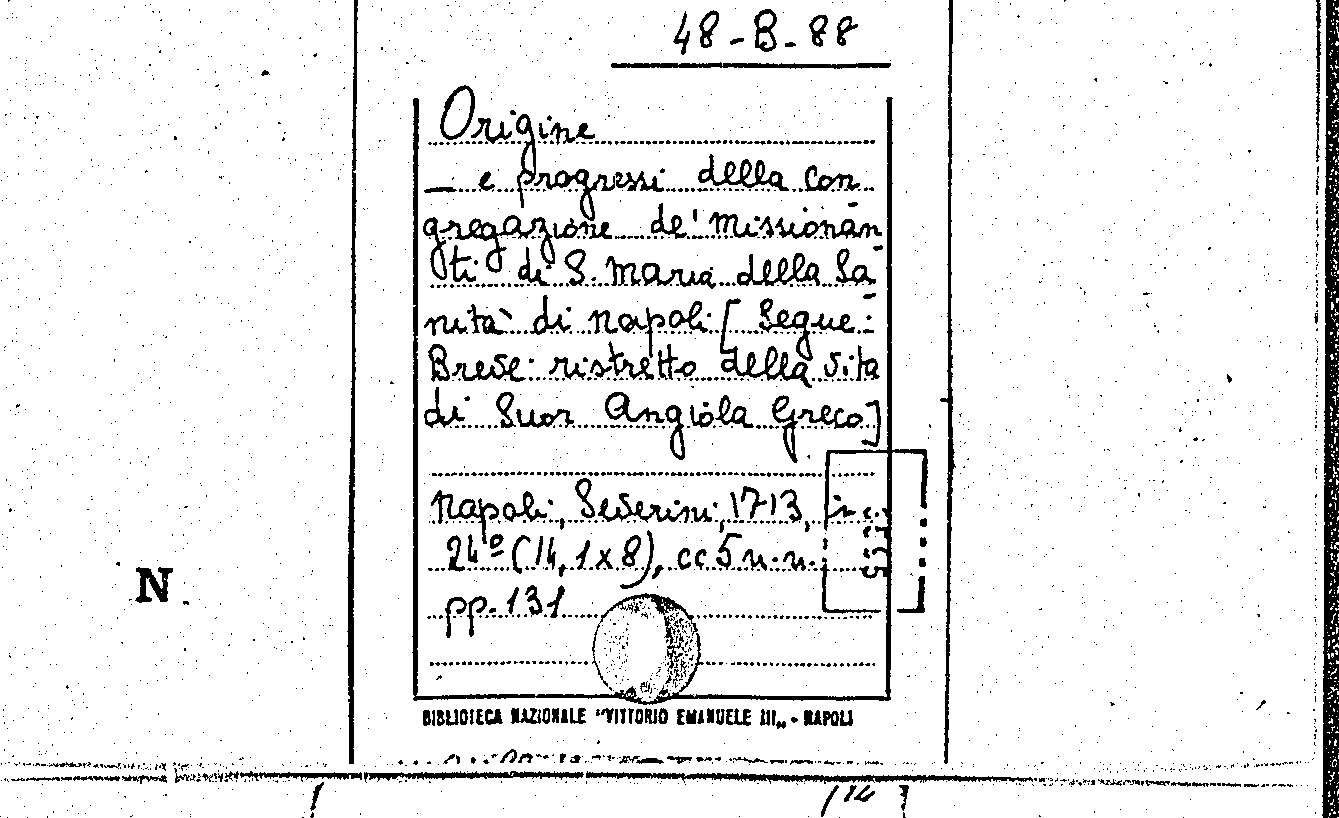 48-B-88
Origine
— e progressi della con
gregazione de' Missionan
ti di S. Maria della Sa
nità di Napoli [Segue:
Breve ristretto della vita
di Suor Angiola Greco]
Napoli, Severini, 1713, in
24º (14,1x8), cc 5 n.n.
pp. 131
N
BIBLIOTECA NAZIONALE "VITTORIO EMANUELE III„ - NAPOLI